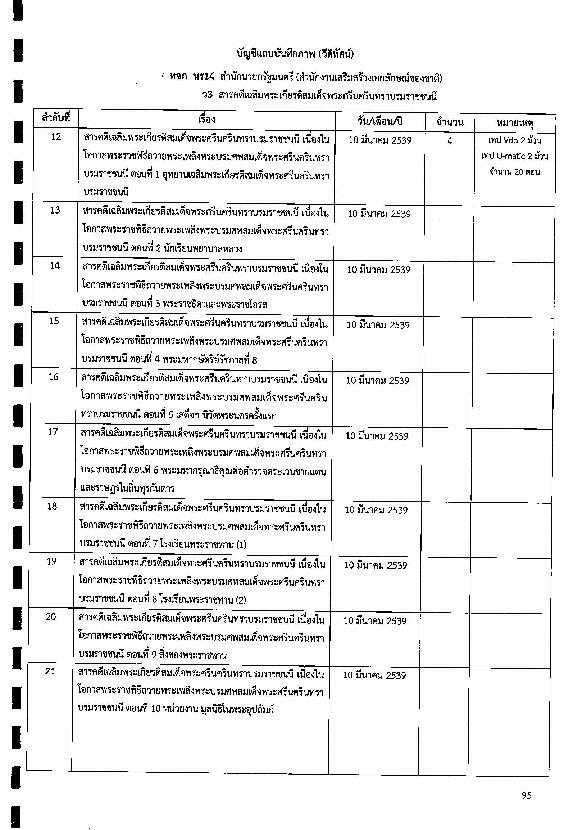 บัญชีแถบบันทึกภาพ (วีดิทัศน์)
หจภ นร14 สำนักนายกรัฐมนตรี (สำนักงานเสริมสร้างเอกลักษณ์ของชาติ)
ว3 สารคดีเฉลิมพระเกียรติสมเด็จพระศรีนครินทราบรมราชชนนี
ลำดับที่ เรื่อง วัน/เดือน/ปี จำนวน หมายเหตุ
12 สารคดีเฉลิมพระเกียรติสมเด็จพระศรีนครินทราบรมราชชนนี เนื่องใน 10 มีนาคม 2539 4 เทป Vdo 2 ม้วน
โอกาสพระราชพิธีถวายพระเพลิงพระบรมศพสมเด็จพระศรีนครินทรา เทป U-matic 2 ม้วน
บรมราชชนนี ตอนที่ 1 อุทยานเฉลิมพระเกียรติสมเด็จพระศรีนครินทรา จำนวน 20 ตอน
บรมราชชนนี
13 สารคดีเฉลิมพระเกียรติสมเด็จพระศรีนครินทราบรมราชชนนี เนื่องใน 10 มีนาคม 2539
โอกาสพระราชพิธีถวายพระเพลิงพระบรมศพสมเด็จพระศรีนครินทรา
บรมราชชนนี ตอนที่ 2 นักเรียนพยาบาลหลวง
14 สารคดีเฉลิมพระเกียรติสมเด็จพระศรีนครินทราบรมราชชนนี เนื่องใน 10 มีนาคม 2539
โอกาสพระราชพิธีถวายพระเพลิงพระบรมศพสมเด็จพระศรีนครินทรา
บรมราชชนนี ตอนที่ 3 พระราชธิดาและพระราชโอรส
15 สารคดีเฉลิมพระเกียรติสมเด็จพระศรีนครินทราบรมราชชนนี เนื่องใน 10 มีนาคม 2539
โอกาสพระราชพิธีถวายพระเพลิงพระบรมศพสมเด็จพระศรีนครินทรา
บรมราชชนนี ตอนที่ 4 พระมหากษัตริย์รัชกาลที่ 8
16 สารคดีเฉลิมพระเกียรติสมเด็จพระศรีนครินทราบรมราชชนนี เนื่องใน 10 มีนาคม 2539
โอกาสพระราชพิธีถวายพระเพลิงพระบรมศพสมเด็จพระศรีนครินทรา
บรมราชชนนี ตอนที่ 5 เสด็จฯ นิวัตพระนครครั้งแรก
17 สารคดีเฉลิมพระเกียรติสมเด็จพระศรีนครินทราบรมราชชนนี เนื่องใน 10 มีนาคม 2539
โอกาสพระราชพิธีถวายพระเพลิงพระบรมศพสมเด็จพระศรีนครินทรา
บรมราชชนนี ตอนที่ 6 พระมหากรุณาธิคุณต่อตำรวจตระเวนชายแดน
และราษฎรในถิ่นทุรกันดาร
18 สารคดีเฉลิมพระเกียรติสมเด็จพระศรีนครินทราบรมราชชนนี เนื่องใน 10 มีนาคม 2539
โอกาสพระราชพิธีถวายพระเพลิงพระบรมศพสมเด็จพระศรีนครินทรา
บรมราชชนนี ตอนที่ 7 โรงเรียนพระราชทาน (1)
19 สารคดีเฉลิมพระเกียรติสมเด็จพระศรีนครินทราบรมราชชนนี เนื่องใน 10 มีนาคม 2539
โอกาสพระราชพิธีถวายพระเพลิงพระบรมศพสมเด็จพระศรีนครินทรา
บรมราชชนนี ตอนที่ 8 โรงเรียนพระราชทาน (2)
20 สารคดีเฉลิมพระเกียรติสมเด็จพระศรีนครินทราบรมราชชนนี เนื่องใน 10 มีนาคม 2539
โอกาสพระราชพิธีถวายพระเพลิงพระบรมศพสมเด็จพระศรีนครินทรา
บรมราชชนนี ตอนที่ 9 สิ่งของพระราชทาน
21 สารคดีเฉลิมพระเกียรติสมเด็จพระศรีนครินทราบรมราชชนนี เนื่องใน 10 มีนาคม 2539
โอกาสพระราชพิธีถวายพระเพลิงพระบรมศพสมเด็จพระศรีนครินทรา
บรมราชชนนี ตอนที่ 10 หน่วยงาน มูลนิธิในพระอุปถัมภ์
95